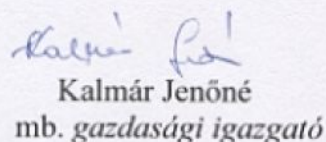 Kalmár Jenőné
mb. gazdasági igazgató